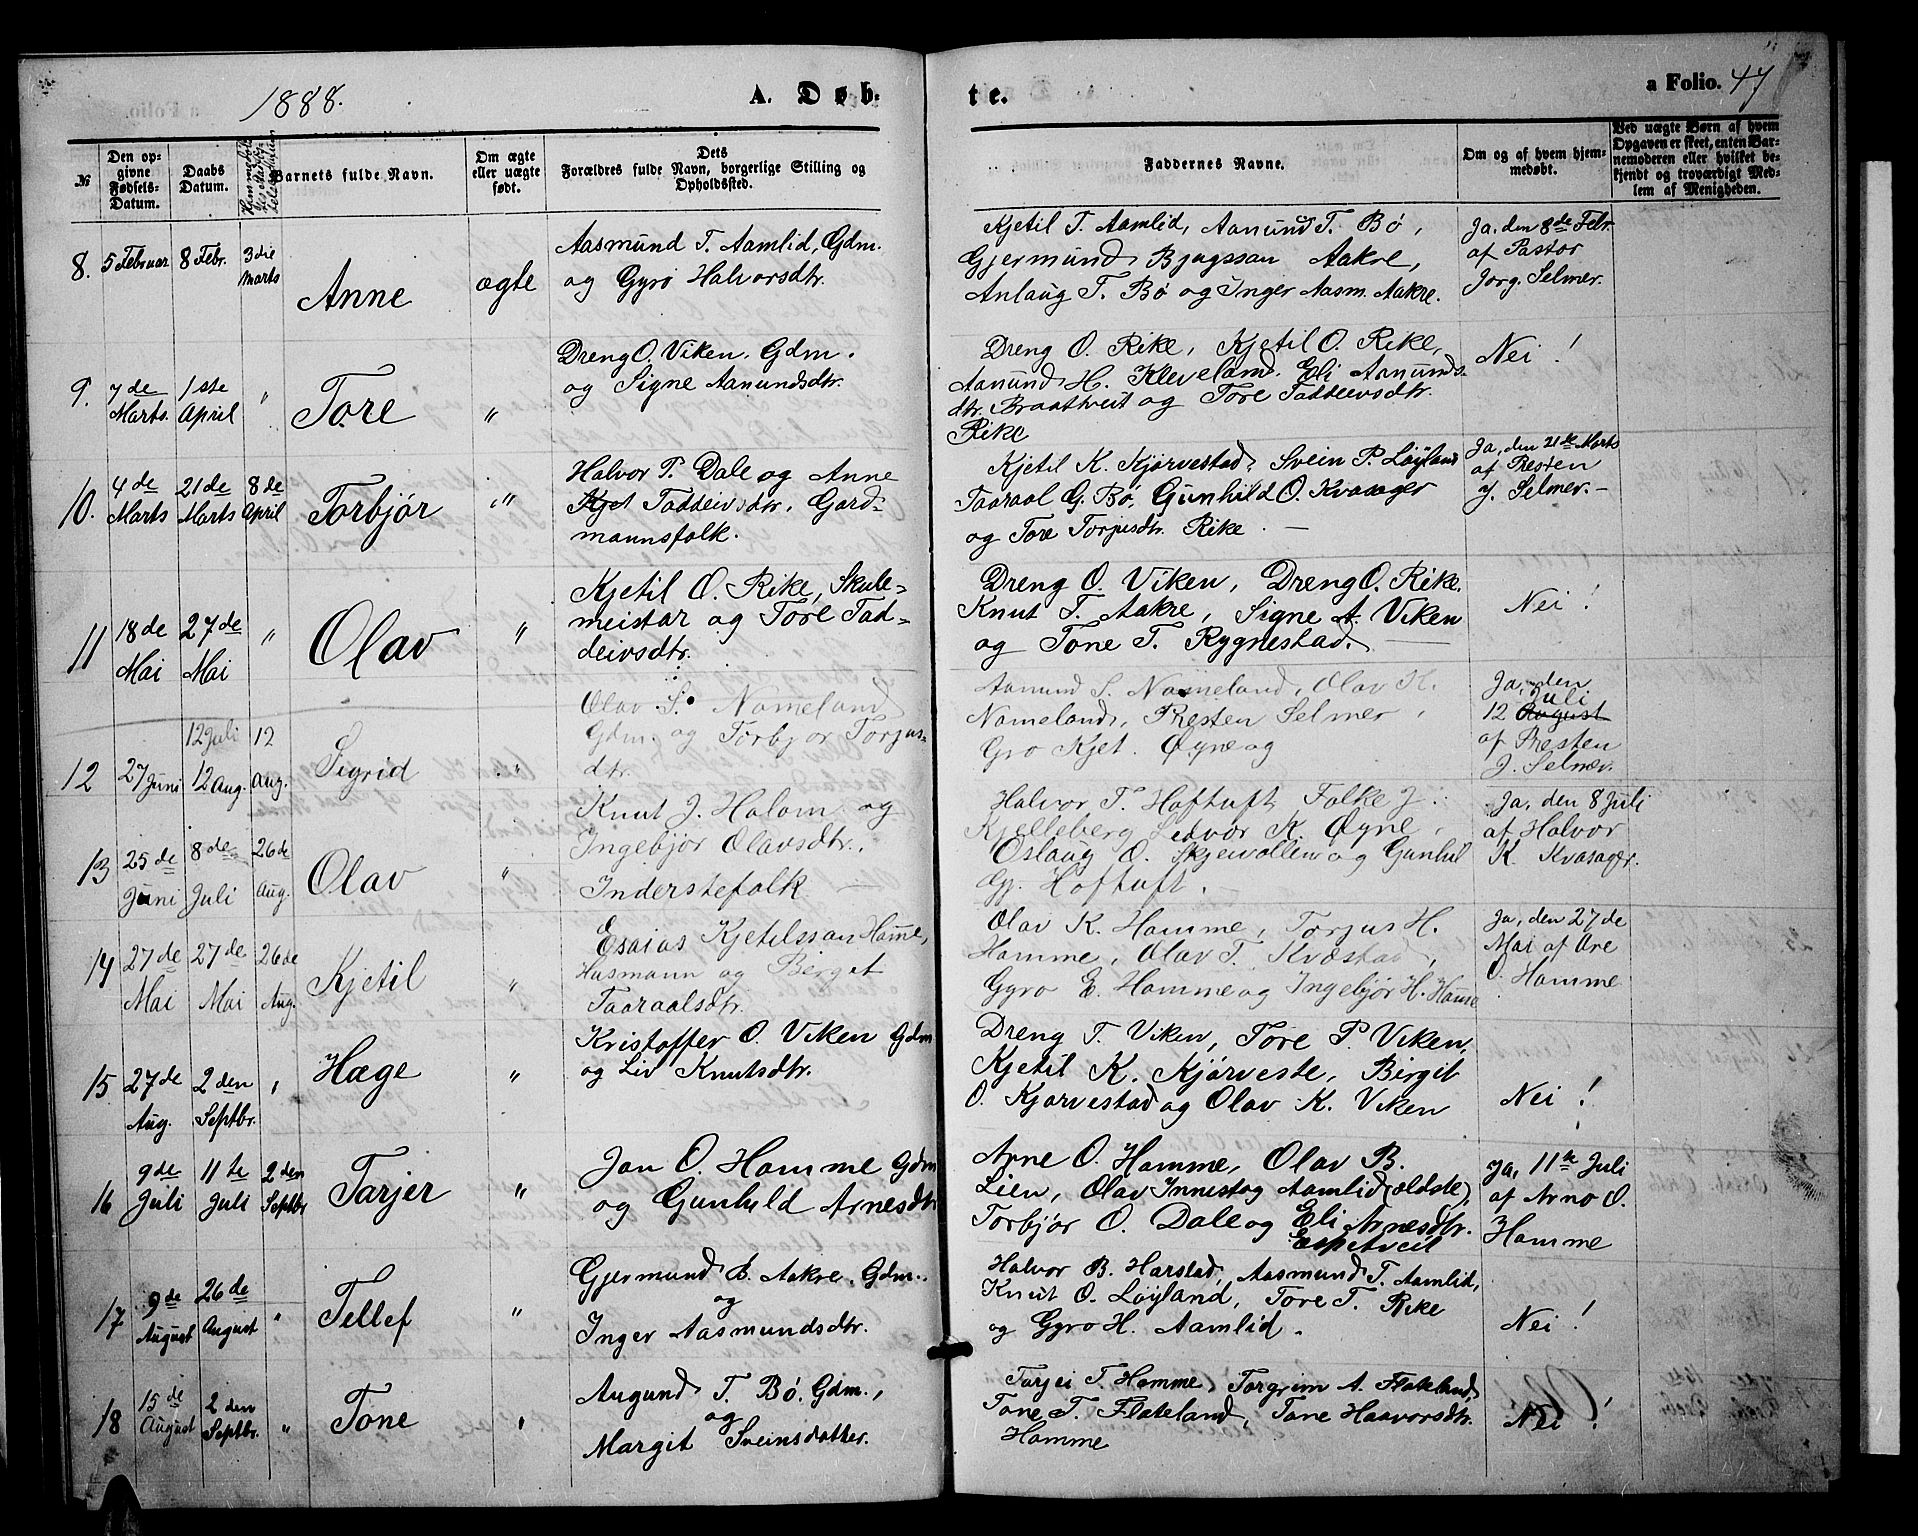 1888.
A. Døb-
te.
a Folio. 47
№
Den op-
givne
Fødsels-
Datum.
Daabs
Datum.
Barnets fulde Navn.
Om ægte
eller uægte
født.
Dets
Forældres fulde Navn, borgerlige Stilling og
Opholdssted.
Faddernes Navne.
Om og af hvem hjem-
medøbt.
Ved uægte Børn af hvem
Opgaven er skeet, enten Bar-
nemoderen eller hvilket be-
kjendt og troværdigt Med-
lem af Menigheden.
8. 5 Februar 8 Febr. 3die
Marts
Anne
ægte
Aasmund T. Aamlid, Gdm.
og Gyro Halvorsdtr.
Kjetil T. Aamlid, Aanund T. Bø,
Gjermund Bjugssan Aakre,
Anlaug T. Bø og Inger Aasm. Aakre.
Ja, den 8de Febr.
af Pastor
Jorg. Selmer.
9. 7de
Marts.
1ste
April
"
Tore
"
Dreng O. Viken. Gdm.
og Signe Aanundsdtr.
Dreng O. Rike, Kjetil O. Rike,
Aanund H. Kleveland. Eli Aanunds-
dtr. Braatveit og Tore Taddeivsdtr.
Rike
Nei!
10. 4de
Marts
21de
Marts
8de
April
Torbjør
"
Halvor T. Dale og Anne
Kjet Taddeivsdtr. Gard-
mannsfolk.
Kjetil K. Kjørvestad, Svein P. Løyland
Taaraal G. Bø, Gunhild O. Kvasager
og Tore Torjusdtr. Rike. —
Ja, den 21de Marts
af Presten
J. Selmer. —
11 18de
Mai
27de
Mai
"
Olav
"
Kjetil O. Rike, Skule-
meistar og Tore Tad-
deivsdtr.
Dreng O. Viken, Dreng O. Rike.
Knut T. Aakre, Signe A. Viken
og Tone T. Rygnestad.
Nei!
12 27 Juni
12 Juli
12 Aug.
12
Aug.
Sigrid
"
Olav S. Nomeland
Gdm. og Torbjør Torjus-
dtr.
Aanund S. Nomeland, Olav K.
Nomeland, Presten Selmer,
Gro Kjet. Øyne og
Ja, den
Juli
12 August
af Presten
J. Selmer.
13 25de
Juni
8de
Juli
26de
Aug.
Olav
"
Knut J. Holom og
Ingebjør Olavsdtr.
Inderstefolk —
Halvor T. Hoftuft, Folke J.
Kjelleberg Ledvor K. Øyne,
Oslaug O. Skjevollen og Gunhil
Gj. Hoftuft.
Ja, den 8 Juli
af Halvor
K. Kvasager.
14 27de
Mai
27de
Mai
26de
Aug.
Kjetil
"
Esaias Kjetilssan Hamre,
Husmann og Berget
Taaraalsdtr.
Olav K. Homme, Torjus H.
Homme, Olav T. Kvæstad,
Gyro E. Homme og Ingebjør H. Home
Ja, den 27de
Mai af Are
O. Homme
15 27de
Aug.
2den
Septbr.
"
Hæge
"
Kristoffer O. Viken Gdm
og Liv Knutsdtr.
Dreng T. Viken, Tore P. Viken,
Kjetil K. Kjørveste, Birgit
O. Kjørvestad og Olav K. Viken
Nei!
16 9de
Juli
11te
Juli
2den
Septbr
Tarjer
"
Jon O. Homme Gdm
og Gunhuld Arnesdtr
Arne O. Homme, Olav B.
Lien, Olav Innestog Aamlid (ældste),
Torbjør O. Dale og Eli Arnesdtr.
Espetveit
Ja, 11te Juli
af Arno O.
Homme
17 9de
August
26de
August
"
Tellef
"
Gjermund B. Aakre. Gdm.
og
Inger Aasmundsdtr.
Halvor B. Harstad, Aasmund T. Aamlid,
Knut O. Løyland, Tore T. Rike
og Gyro H. Aamlid.
Nei!
18 15de
August
2den
Septbr.
"
Tone
"
Augund T. Bø. Gdm.,
og
Margit Sveinsdatter.
Tarjei T. Homme, Torgrim A. Flateland,
Tone T. Flateland, Tone Haavorsdtr.
Homme
Nei!